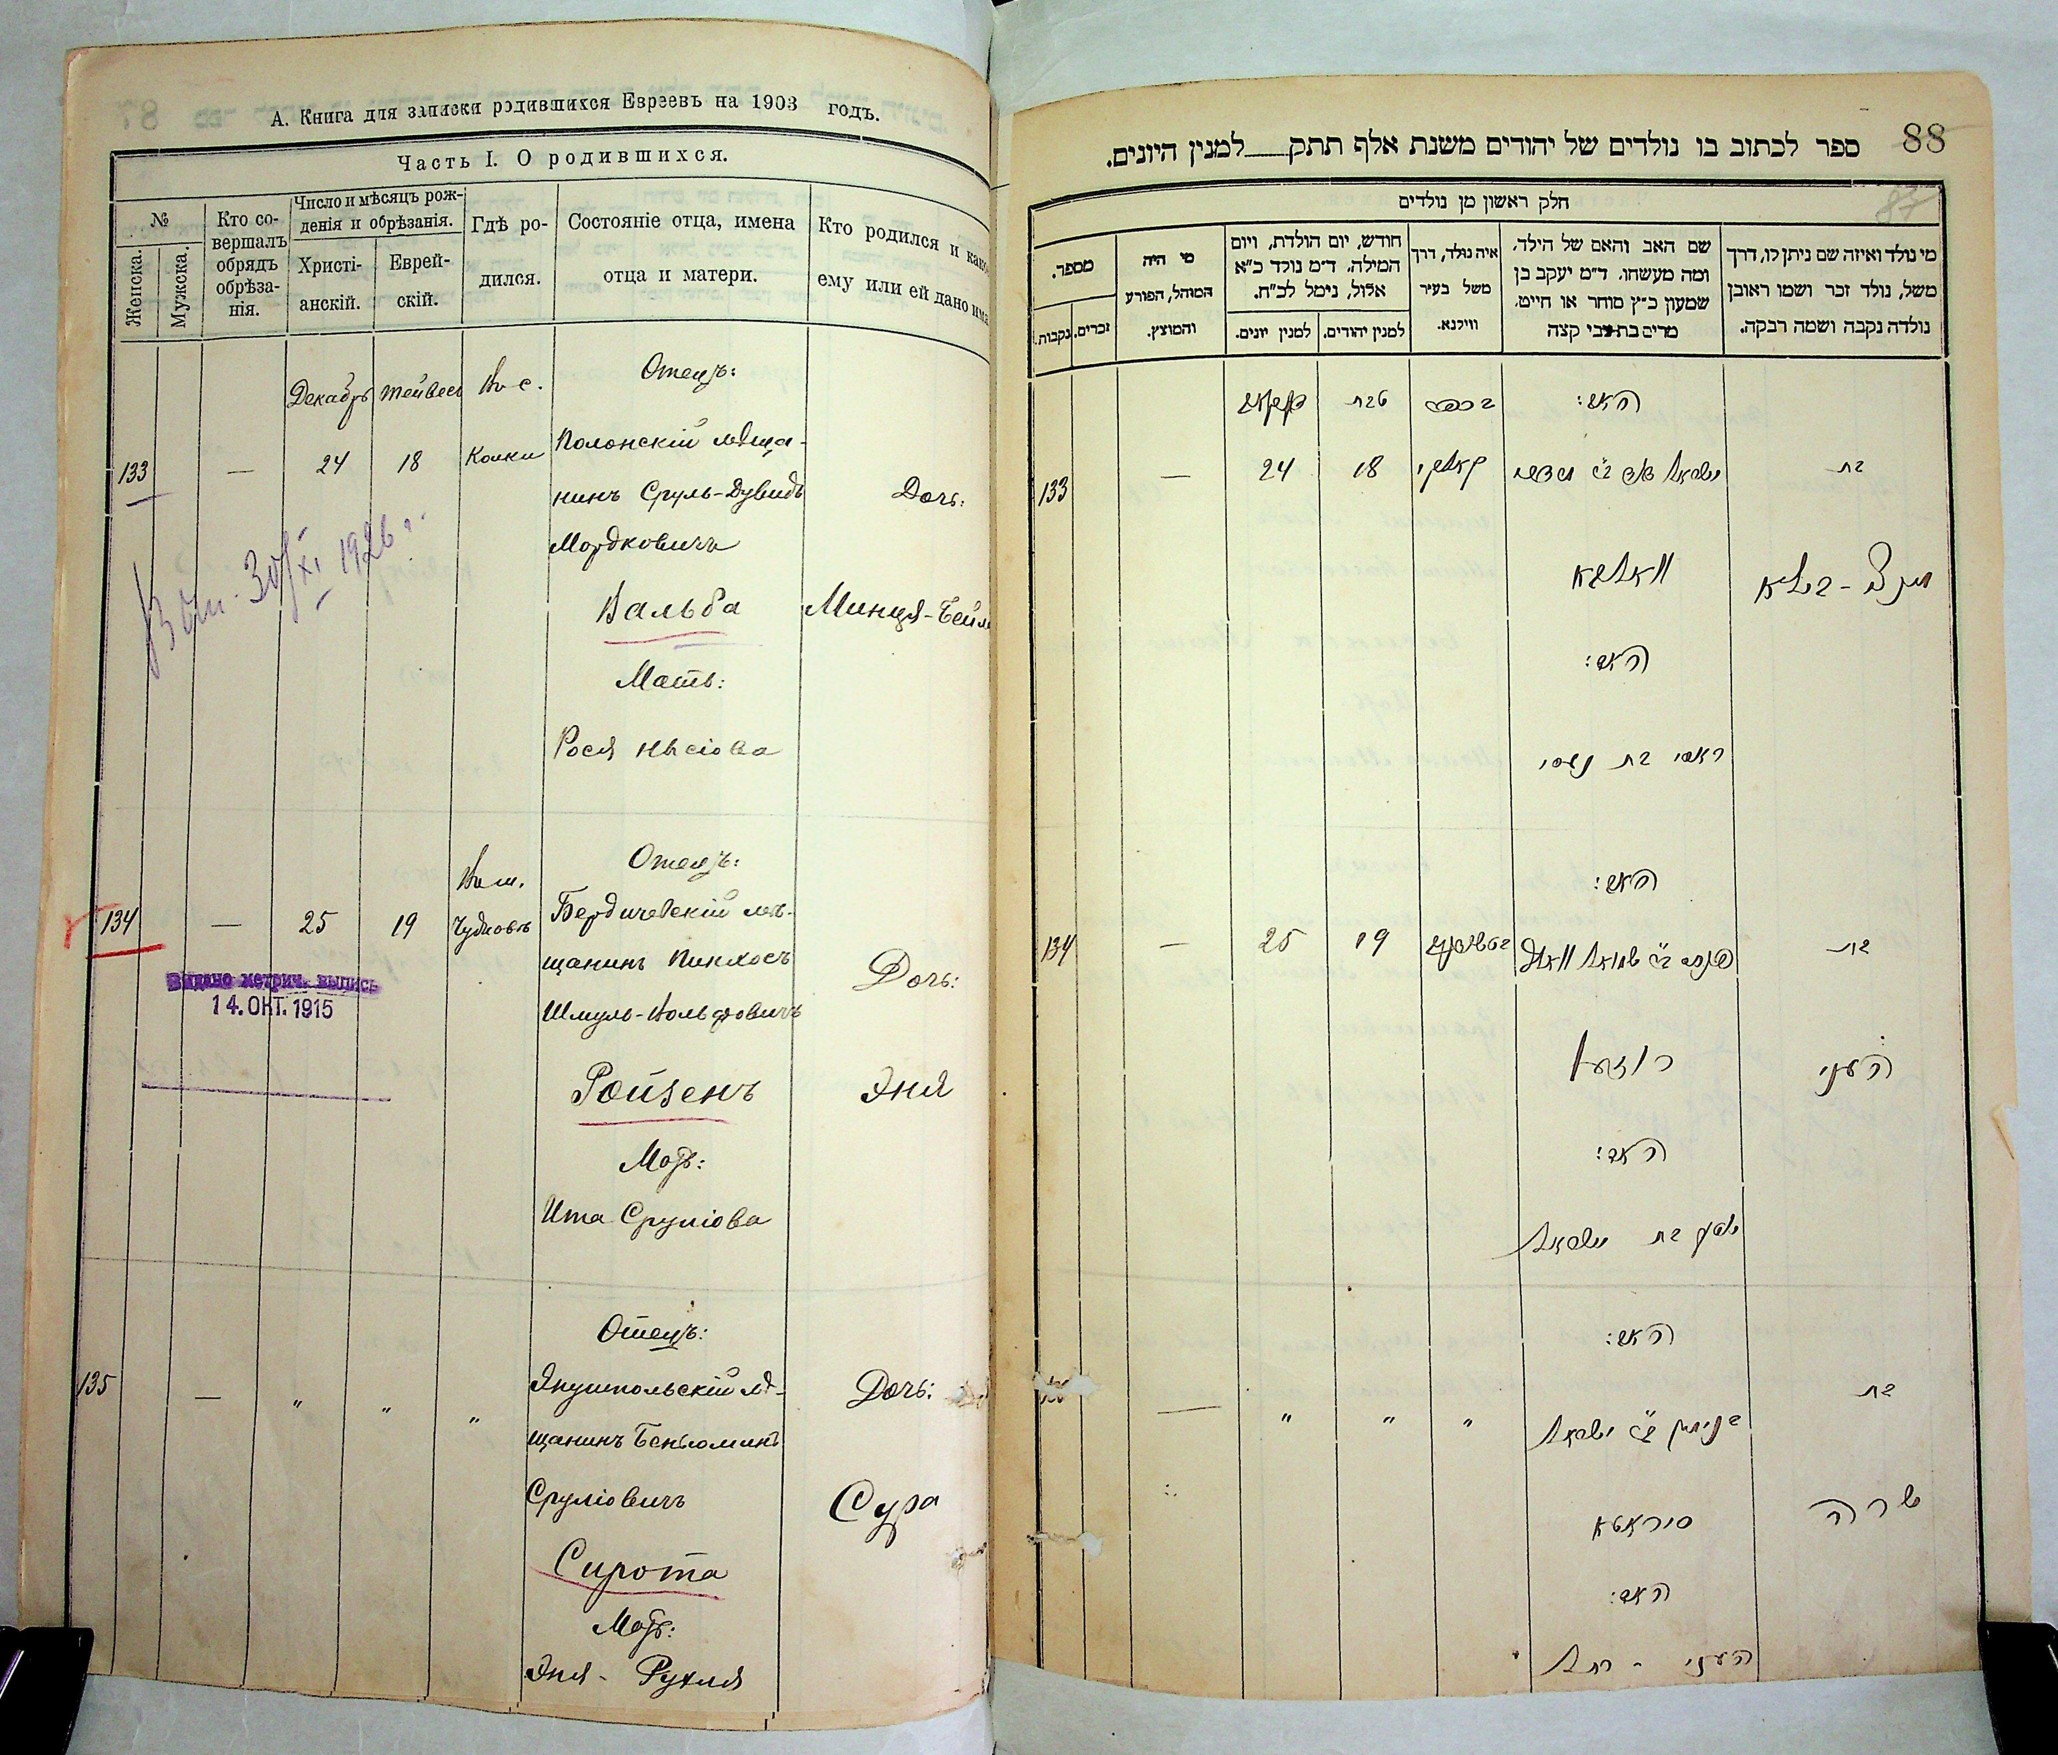 А. Книга для записки родившихся Евреевъ на 1903 годъ.
Часть I. О родившихся.
№
Женска.
Мужска.
Кто со-
вершалъ
обрядъ
обрѣза-
нія.
Число и мѣсяцъ рож-
денія и обрѣзанія.
Христі-
анскій.
Еврей-
скій.
Гдѣ ро-
дился.
Состояніе отца, имена
отца и матери.
Кто родился и како
ему или ей дано има
Декабрь Тейвесъ Въ с. Отецъ:
133 — 24 18 Колки Полонскій мѣща-
нинъ Сруль-Дувидъ Дочь:
Мордковичъ
Вальба Минця-Бейл
Мать:
Рося
30/XI 1926 г.
Въ м. Отецъ:
134 — 25 19 Чудновъ Бердичевскій мѣ-
щанинъ Пинхосъ Дочь:
Шмуль-Вольфовичъ
Видано метрич. выпись
14. ОКТ. 1915
Ройзенъ Эня
Мать:
Ита Сруліова
Отецъ:
135 — " " " Янушпольскій мѣ- Дочь:
щанинъ Беньоминъ
Сруліовичъ Сура
Сирота
Мать:
Эня - Рухля
88
ספר לכתוב בו נולדים של יהודים משנת אלף תתק למנין היונים.
חלק ראשון מן נולדים
מי נולד ואיזה שם ניתן לו, דרך
משל, נולד זכר ושמו ראובן
נולדה נקבה ושמה רבקה.
שם האב והאם של הילד,
ומה מעשהו. ד״מ יעקב בן
שמעון כ״ץ סוחר או חייט,
מרים בת צבי קצה
איה נולד, דרך
משל בעיר
ווילנא.
חודש, יום הולדת, ויום
המילה. ד״מ נולד כ״א
אלול, נימל לכ״ח.
למנין יהודים.
למנין יונים.
מי היה
המוהל, הפורע
והמוצץ.
מספר.
זכרים.
נקבות.
האב: טבת דעקאבר
בת ישראל דוד ב״ר 18 24 — 133
וואלבא
האם:
ראסי בת
האב:
בת פנחס ב״ר שמואל וואלף 19 25 — 134
העני רויזען
האם:
בת ישראל
האב:
בת בנימין ב״ר ישראל " " " —
שרה סיראטא
האם:
העני - רחל